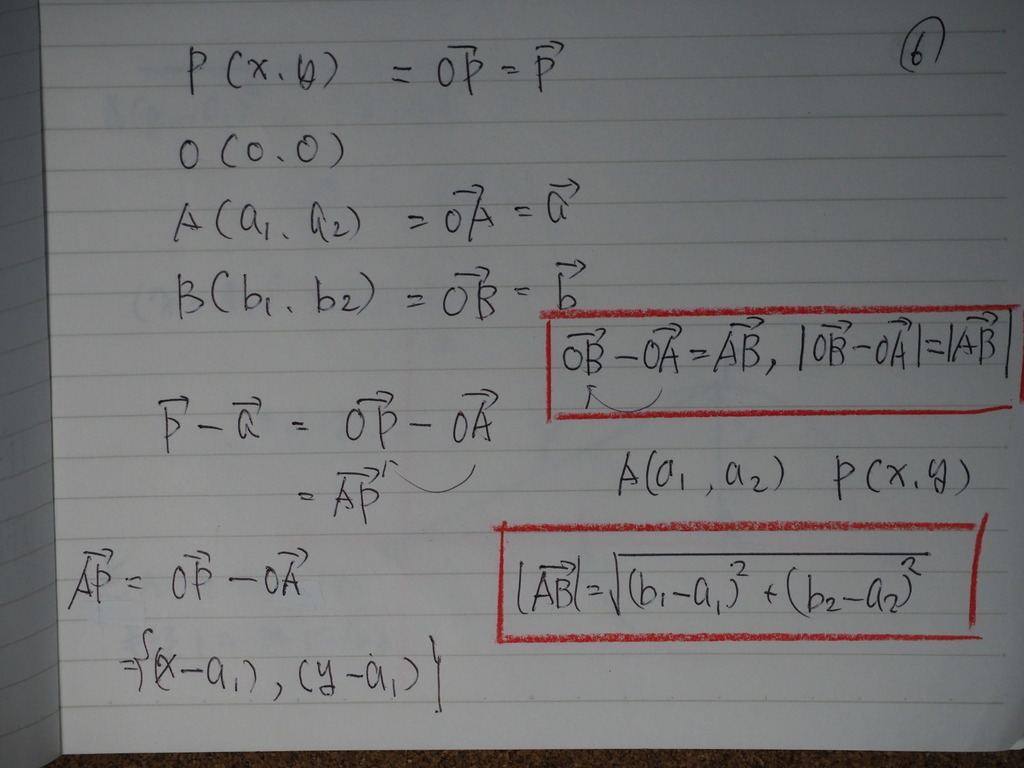 ⑥
P(x、y) = \overrightarrow{OP} = \overrightarrow{p}
O(0、0)
A(a₁、a₂) = \overrightarrow{OA} = \overrightarrow{a}
B(b₁、b₂) = \overrightarrow{OB} = \overrightarrow{b}
\overrightarrow{OB} − \overrightarrow{OA} = \overrightarrow{AB}, |\overrightarrow{OB} − \overrightarrow{OA}| = |\overrightarrow{AB}|
\overrightarrow{p} − \overrightarrow{a} = \overrightarrow{OP} − \overrightarrow{OA}
= \overrightarrow{AP}
A(a₁, a₂) P(x, y)
\overrightarrow{AP} = \overrightarrow{OP} − \overrightarrow{OA}
={(x−a₁), (y−a₁)}
|\overrightarrow{AB}| = \sqrt{(b₁−a₁)² + (b₂−a₂)²}